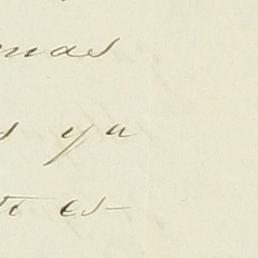 mas
s ya
te es-